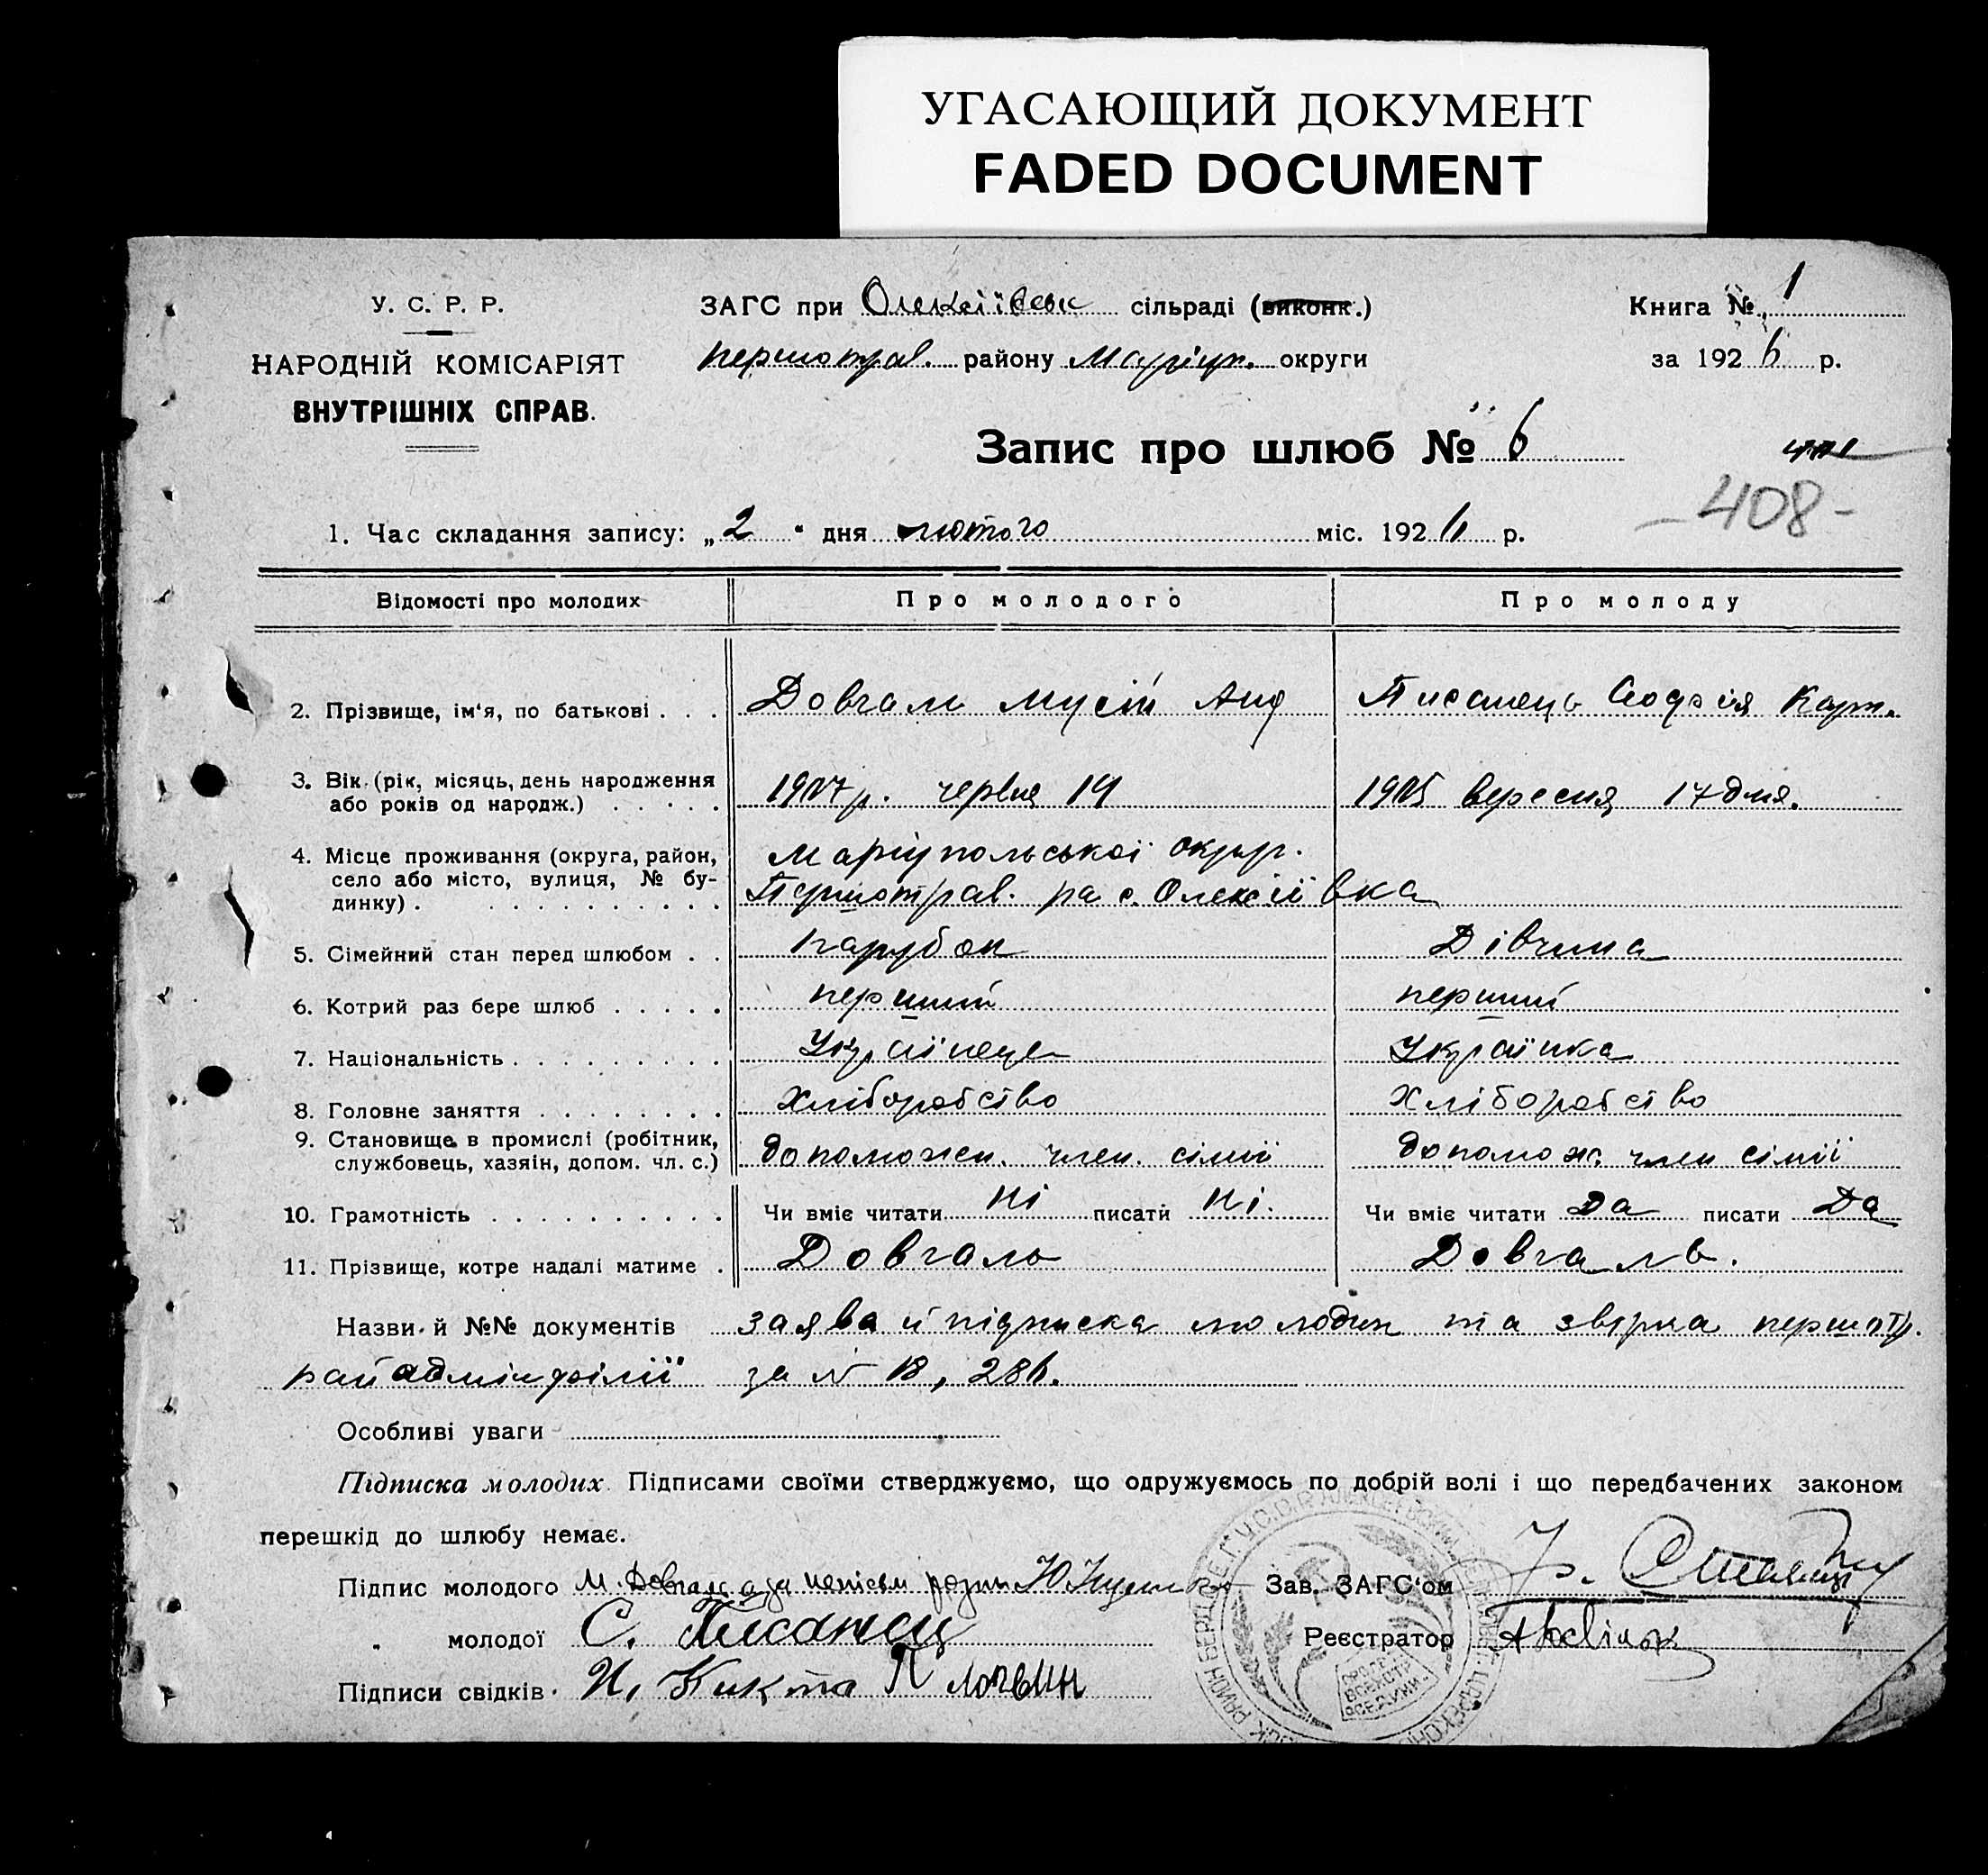 УГАСАЮЩИЙ ДОКУМЕНТ
FADED DOCUMENT
У. С. Р. Р.
НАРОДНІЙ КОМІСАРІЯТ
ВНУТРІШНІХ СПРАВ.
ЗАГС при Олексіївськ сільраді (виконк.)
першотрав. районy Маріуп. округи
Книга № 1
за 1926 р.
Запис про шлюб № 6
408
1. Час складання запису: „2“ дня лютого міс. 1926 р.
Відомості про молодих Про молодого Про молоду
2. Прізвище, ім'я, по батькові . . . Довгаль Мусій Анд Писанець Софія Карп.
3. Вік (рік, місяць, день народження або років од народж.) . . . . . 1907 р. червня 14 1905 вересня 17 дня.
4. Місце проживання (округа, район, село або місто, вулиця, № будинку) . . . . . . . . . . . Маріупольської округ.
Першотрав. ра с. Олексіївка
5. Сімейний стан перед шлюбом . . парубок Дівчина
6. Котрий раз бере шлюб . . . . . перший перший
7. Національність . . . . . . . . . Українець Українка
8. Головне заняття . . . . . . . . Хліборобство Хліборобство
9. Становище в промислі (робітник, службовець, хазяін, допом. чл. с.) допоможн. член. сімії допомож. член сімії
10. Грамотність . . . . . . . . . . Чи вміє читати ні писати ні. Чи вміє читати Да писати Да
11. Прізвище, котре надалі матиме . Довгаль Довгаль.
Назви й №№ документів заява й підписка молодих та звірка першотр.
райадмінфілії за № 18, 286.
Особливі уваги
Підписка молодих. Підписами своїми стверджуємо, що одружуємось по добрій волі і що передбачених законом
перешкід до шлюбу немає.
Підпис молодого М. Довгаль а за непісьм розпи Ю. Зав. ЗАГС'ом
молодої С. Писанец Реєстратор
Підписи свідків И. Кикта П Логвин